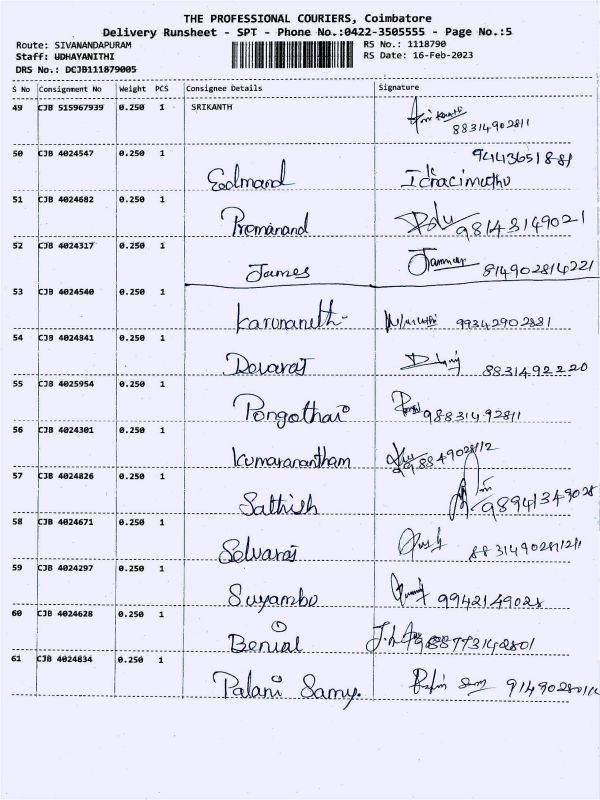 THE PROFESSIONAL COURIERS, Coimbatore
Delivery Runsheet - SPT - Phone No.:0422-3505555 - Page No.:5
Route: SIVANANDAPURAM RS No.: 1118790
Staff: UDHAYANITHI RS Date: 16-Feb-2023
DRS No.: DCJB111879005
S No Consignment No Weight PCS Consignee Details Signature
49 CJB 515967939 0.250 1 SRIKANTH
88314902811
50 CJB 4024547 0.250 1
Edmand
51 CJB 4024682 0.250 1
Premanand 98143149021
52 CJB 4024317 0.250 1
James 814902814221
53 CJB 4024540 0.250 1
Karunanith- 99342902831
54 CJB 4024841 0.250 1
Devaraj 8831492220
55 CJB 4025954 0.250 1
Pongothai 98831492811
56 CJB 4024301 0.250 1
Kumaranantham
57 CJB 4024826 0.250 1
Sathish 98941349028
58 CJB 4024671 0.250 1
Selvaraj
59 CJB 4024297 0.250 1
Suyambu 9942149028
60 CJB 4024628 0.250 1
Benial
61 CJB 4024834 0.250 1
Palani Samy.